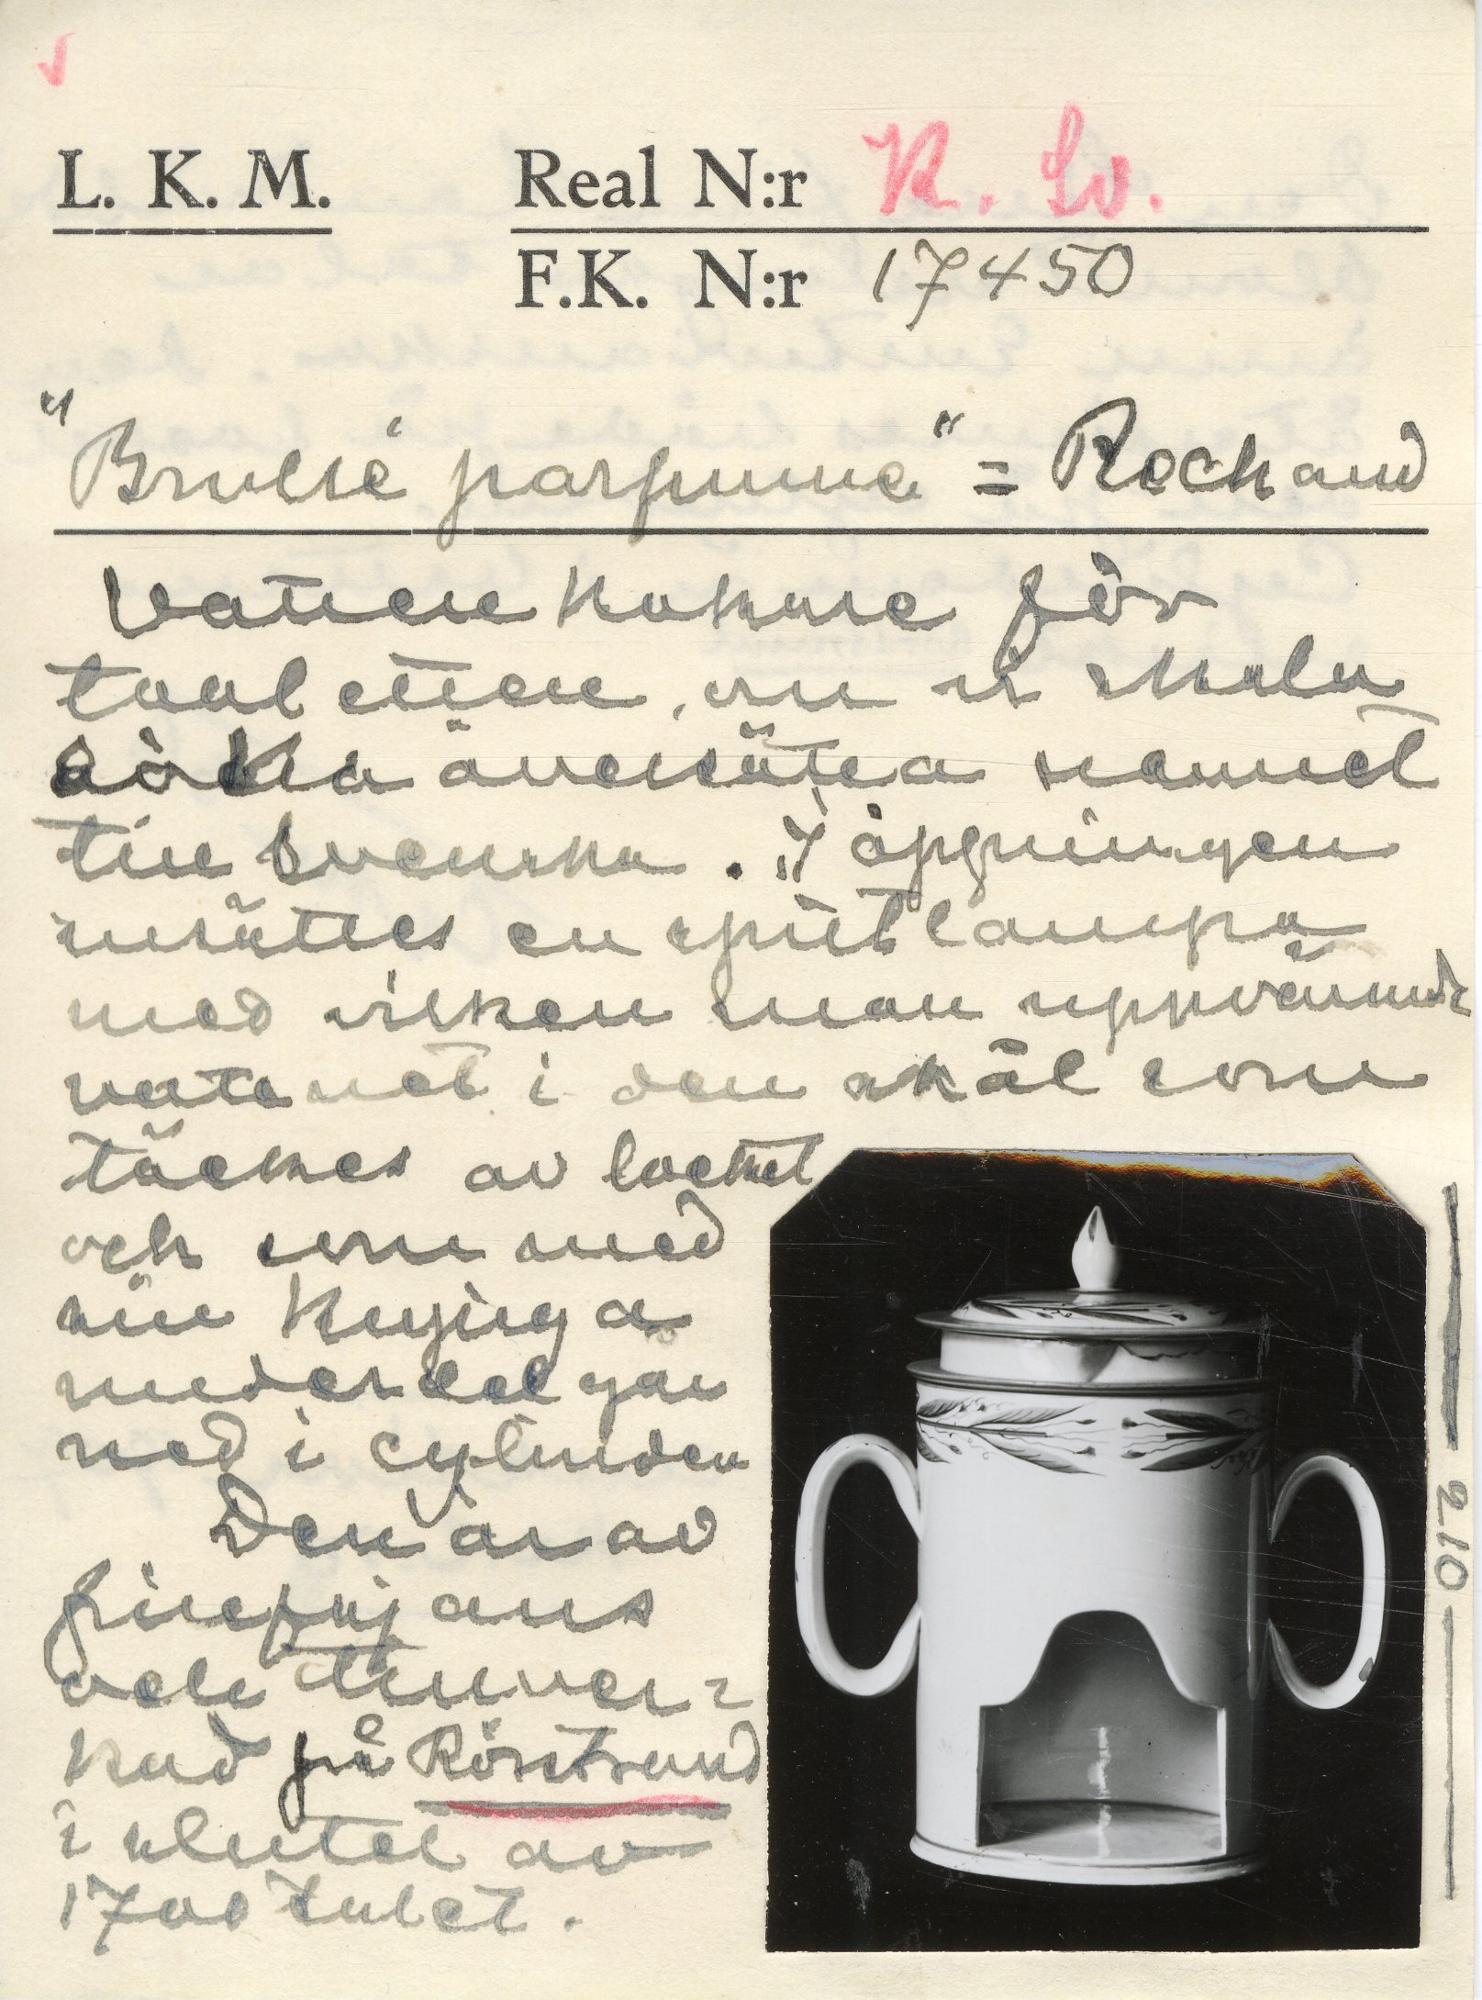 L. K. M.
Real N:r R. Sv.
F.K. N:r 17450
"Brullé parfumme" = Rechaud
Vattenkokare för
toaletten, om vi skola
söka översätta namnet
till Svenska. I öppningen
insättes en spritlampa
med vilken man uppvärmde
vattnet i den skål som
täckes av locket
och som med
sin kupiga
nederdel går
ned i cylindern
Den är av
finefajans
och tillver-
kad på Rörstrand
i slutet av
1700 talet.
210